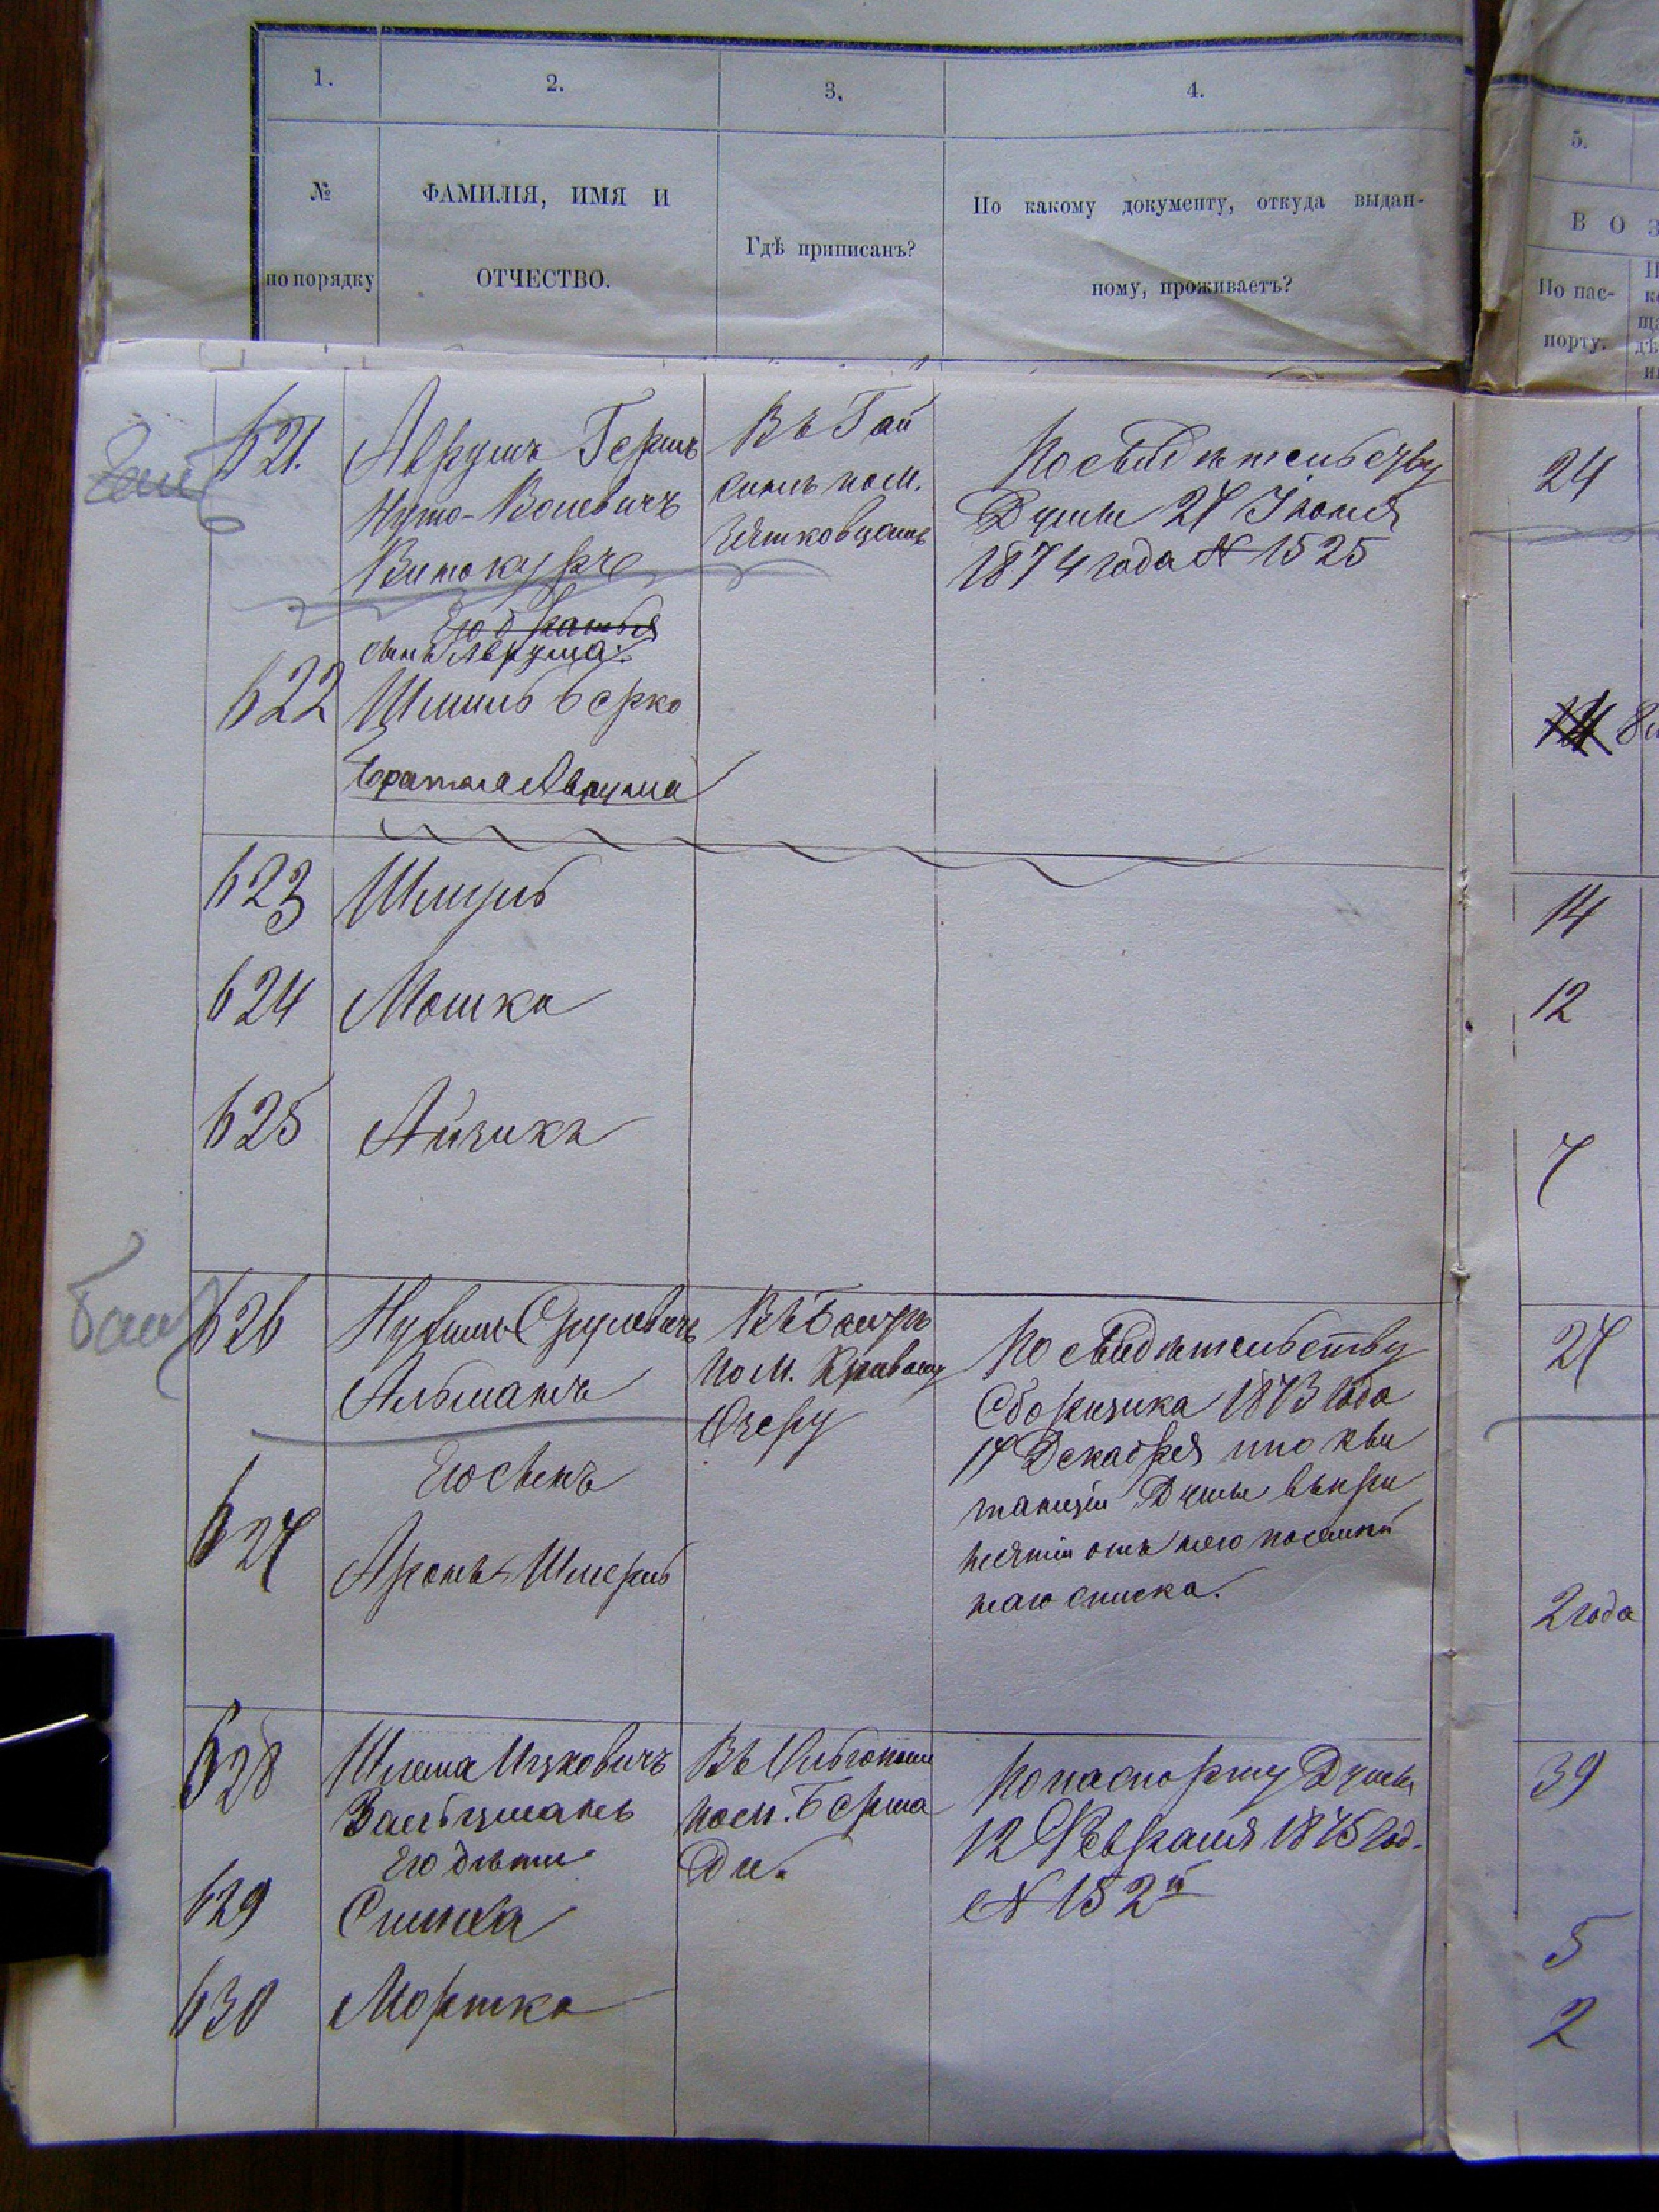 1.
2.
3.
4.
5.
№
по порядку
ФАМИЛІЯ, ИМЯ И
ОТЧЕСТВО.
Гдѣ приписанъ?
По какому документу, откуда выдан-
ному, проживаетъ?
В О З
По пас-
порту.
621.
Аврумъ Гершъ
Нуто-Волевичъ
Винокуръ
Въ Гай
синѣ пом.
По свидѣтельству
Думы 27 Іюня
1874 года № 1525
24
Его братья
сынъ Аврума:
622
Шмиль Берко
братья Аврума
623
Шмуль
14
624
Мошка
12
625
Айзикъ
7
626
Нухимъ Срулевичъ
Альтманъ
Въ Балтѣ
по м. Кривому
Озеру
По свидѣтельству
Сборщика 1873 года
17 Декабря и по кви
танціи Думы въ при
нятіи отъ него посемей
наго списка.
27
Его сынъ
627
Аронъ-Шмеръ
2 года
628
Шлема Ицковичъ
Зальцманъ
Въ Ольгополѣ
по м. Берша
ди.
По паспорту Думы
12 Февраля 1875 год.
№ 152й
39
Его дѣти
629
Симха
5
630
Мортко
2